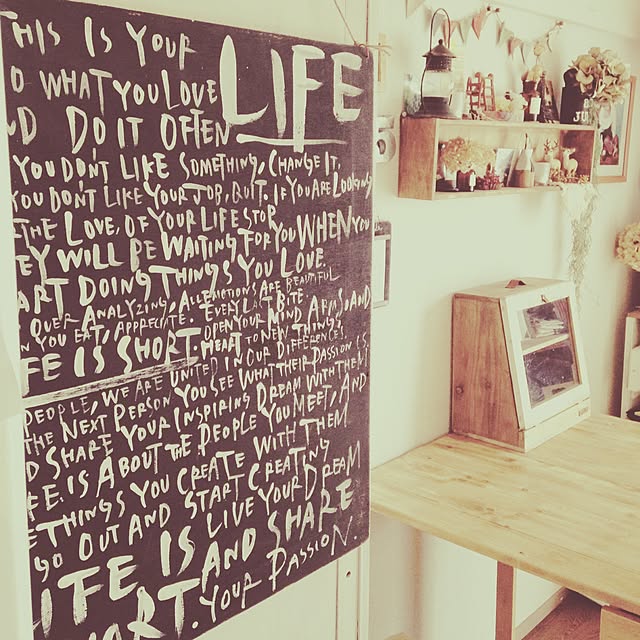 THIS IS YOUR LIFE
O WHAT YOU LOVE
D DO IT OFTEN
YOU DON'T LIKE SOMETHING, CHANGE IT.
YOU DON'T LIKE YOUR JOB, QUIT. IF YOU ARE LOOKING
THE LOVE, OF YOUR LIFE STOP
EY WILL BE WAITING FOR YOU WHEN YOU
ART DOING THINGS YOU LOVE.
OVER ANALYZING, ALL EMOTIONS ARE BEAUTIFUL
N YOU EAT, APPRECIATE. EVERY LAST BITE
FE IS SHORT. OPEN YOUR MIND, ARMS, AND
HEART TO NEW THINGS,
PEOPLE, WE ARE UNITED IN OUR DIFFERENCES.
THE NEXT PERSON YOU SEE WHAT THEIR PASSION IS
D SHARE YOUR INSPIRING DREAM WITH THEM
FE IS ABOUT THE PEOPLE YOU MEET, AND
E THINGS YOU CREATE WITH THEM
GO OUT AND START CREATING
LIFE IS LIVE YOUR DREAM
AND SHARE
ART. YOUR PASSION.
JU